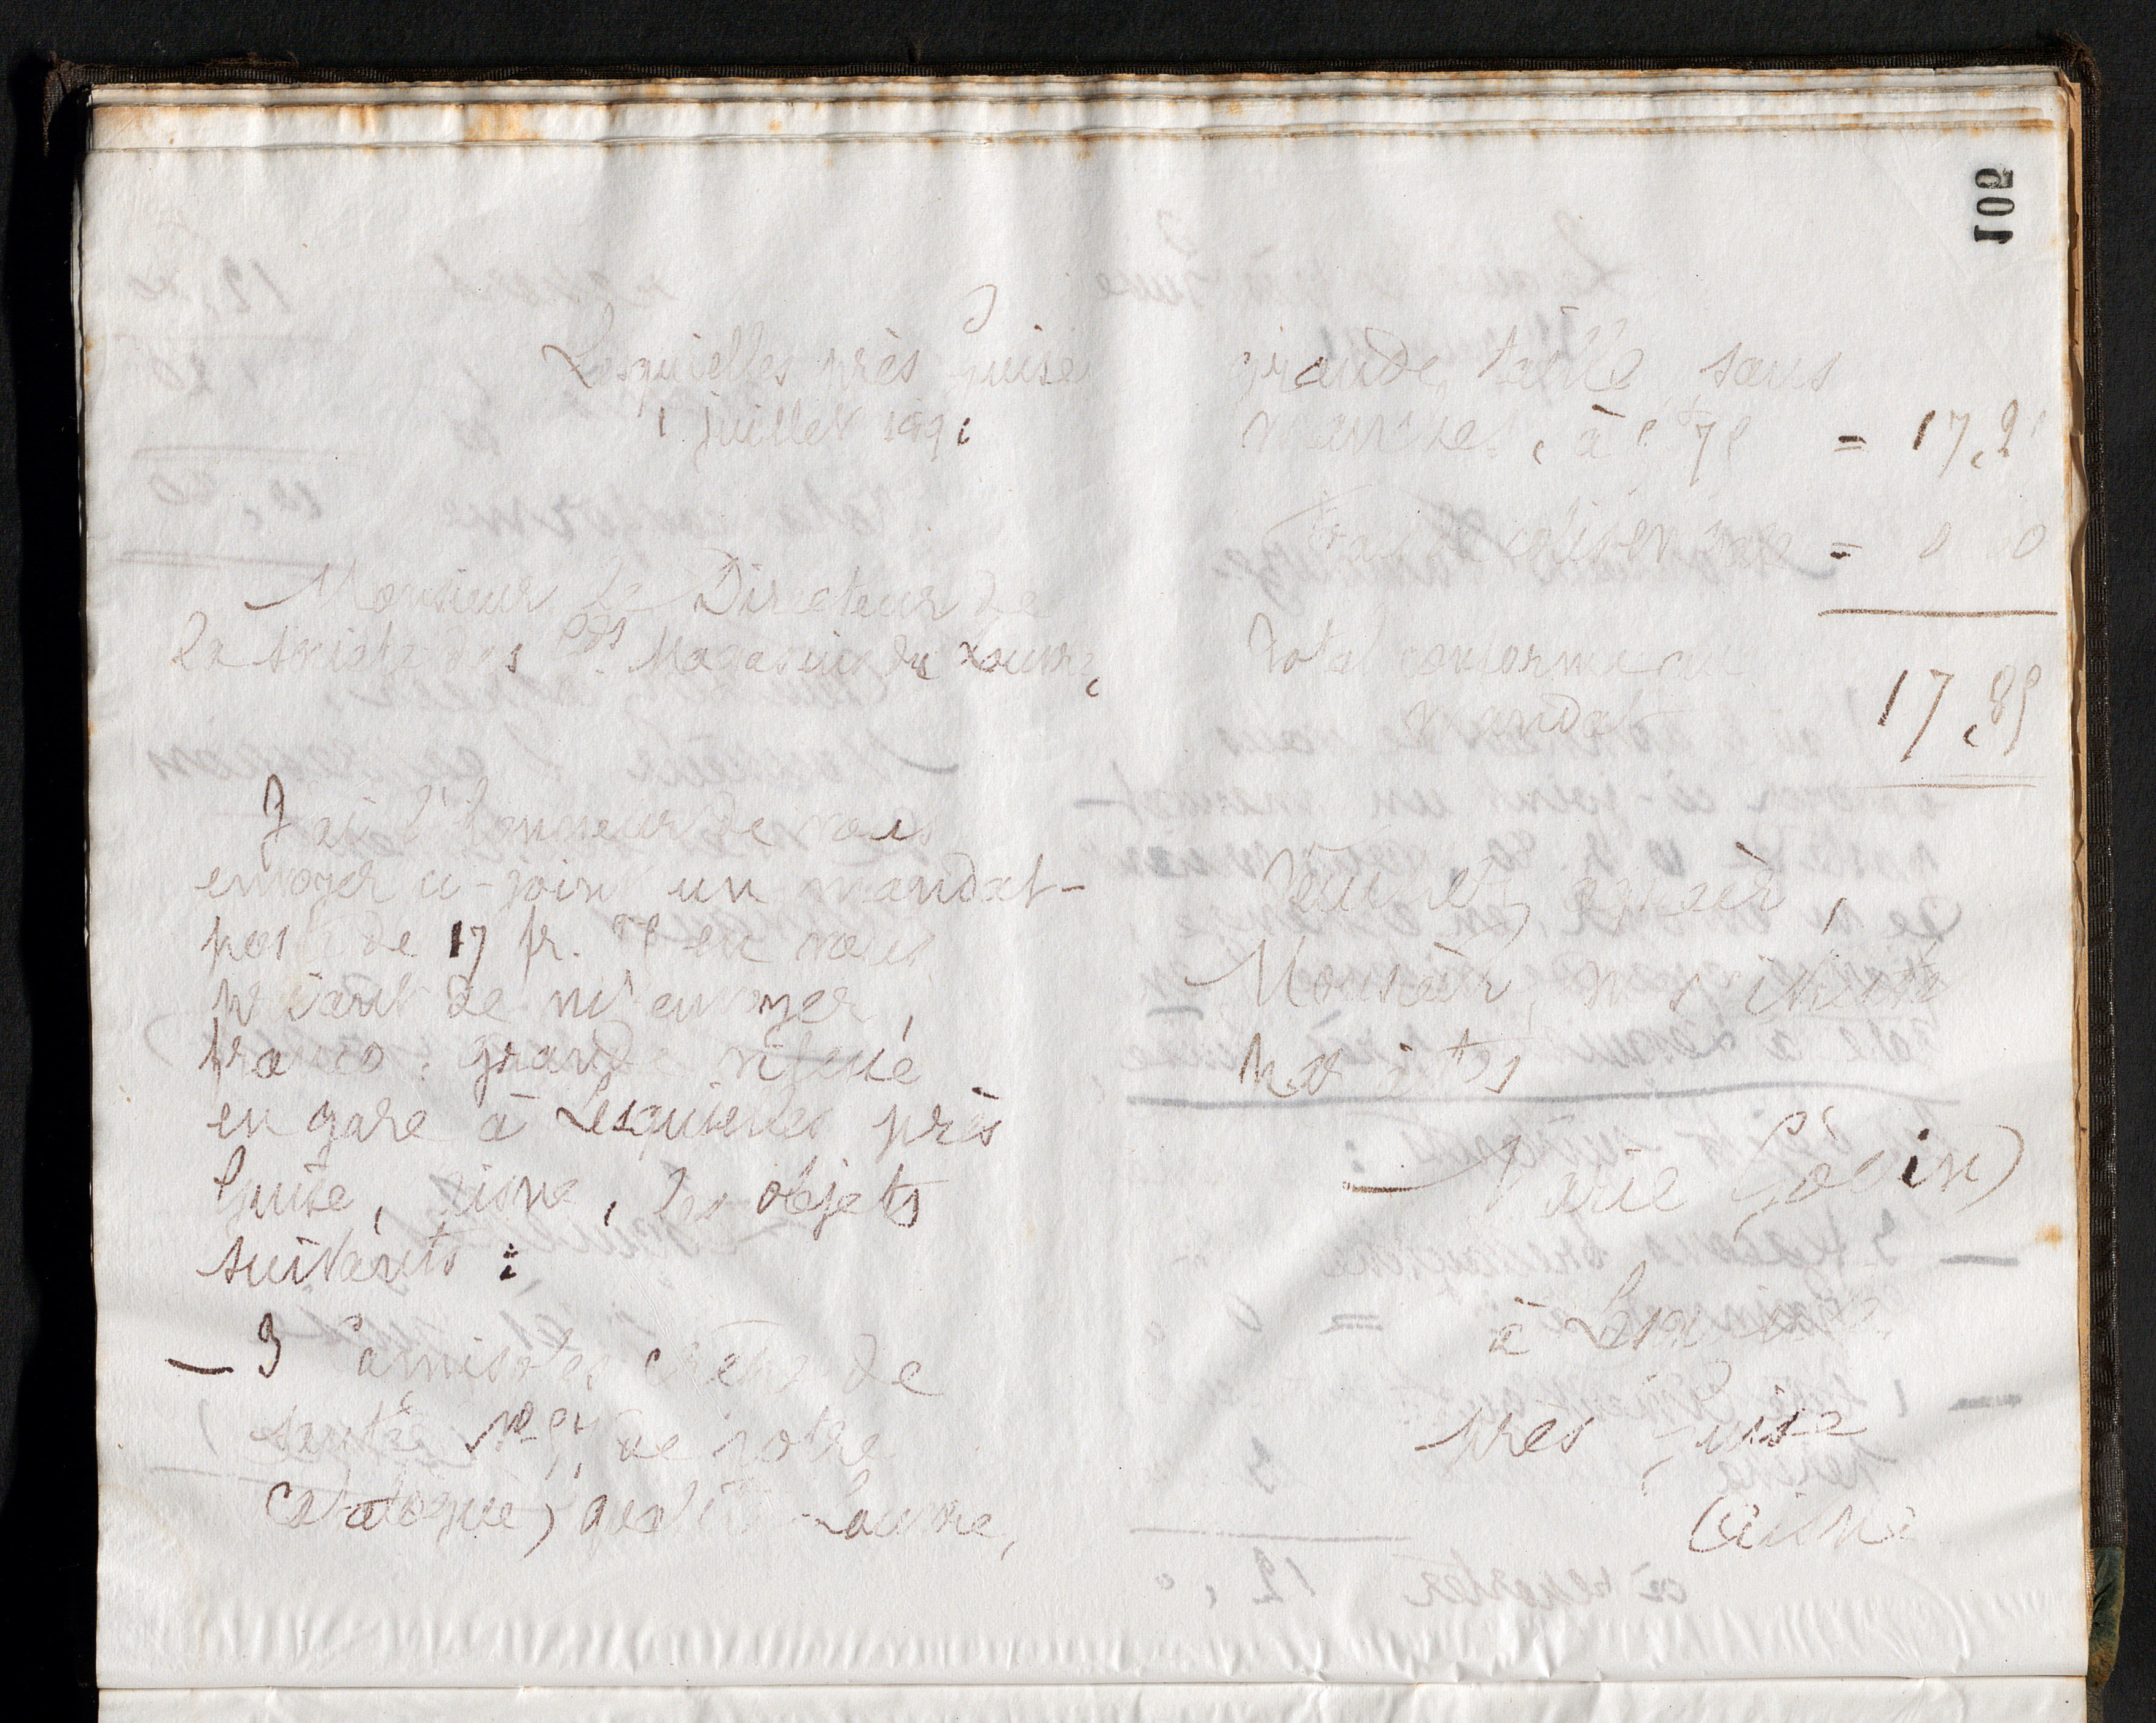 105
Lesquielles près Guise
1 juillet 1891
Monsieur le Directeur de
la Société des Gds Magasins du Louvre,
J'ai l'honneur de vous
envoyer ci-joint un mandat-
poste de 17 fr. 85 en vous
priant de m'envoyer,
franco : grande vitesse
en gare à Lesquielles près
Guise, Aisne, les objets
suivants :
- 3 Camisoles crêpe de
santé (No de votre
catalogue) qualité Louvre,
grande taille, sans
manches, à 5f 75 = 17,25
Frais de = 0 60
Total conforme au
mandat 17,85
Veuillez agréer,
Monsieur, mes
Marie Godin
à Lesquielles
près Guise
(Aisne